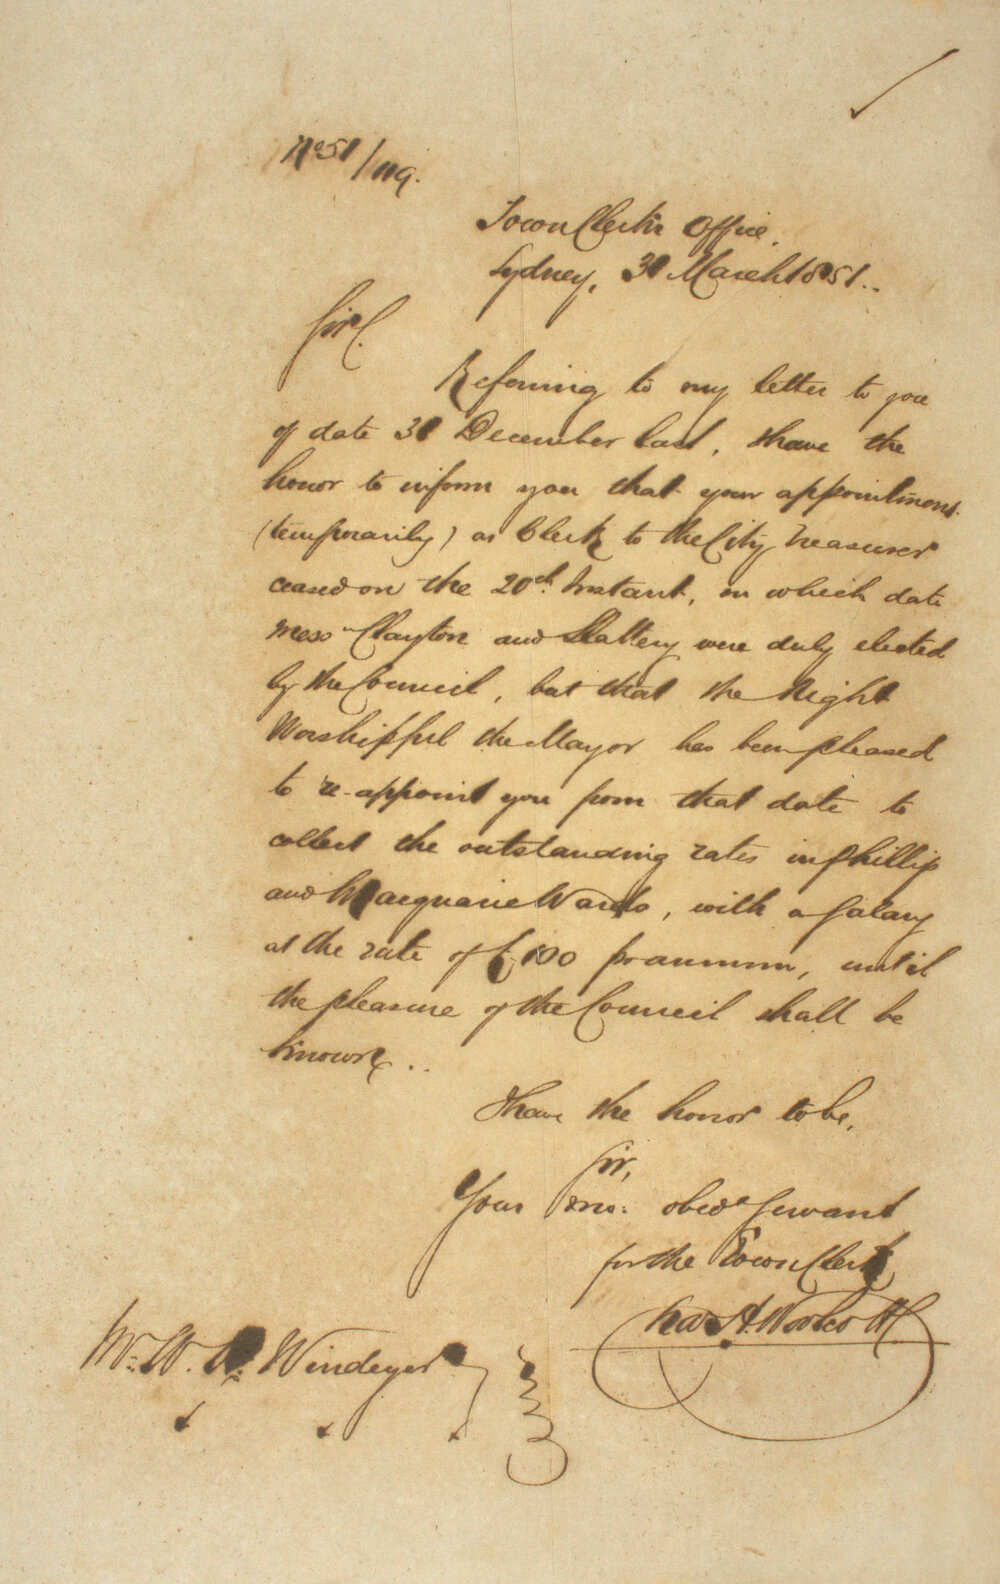 No 51/119.
Town Clerk's Office,
Sydney, 31 March 1851..
Sir,
Referring to my letter to you
of date 31 December last, I have the
honor to inform you that your appointment
(temporarily) as Clerk to the City Treasurer
ceased on the 20th Instant, on which date
Messrs Clayton and Slattery were duly elected
by the Council, but that the Right
Worshipful the Mayor has been pleased
to re-appoint you from that date to
collect the outstanding rates in Phillip
and Macquarie Wards, with a Salary
at the rate of £100 pr annum, until
the pleasure of the Council shall be
known..
I have the honor to be,
Sir,
Your obedt Servant
for the Town Clerk
Chas H. Woolcott
Mr. W. Windeyer